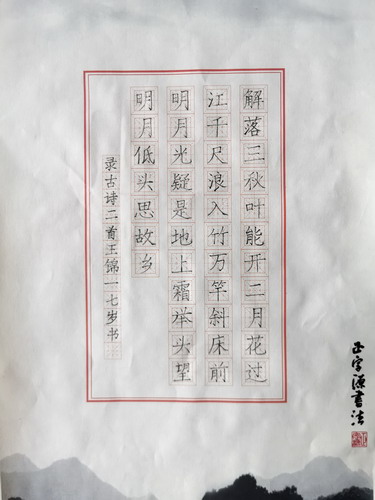 解落三秋叶能开二月花过
江千尺浪入竹万竿斜床前
明月光疑是地上霜举头望
明月低头思故乡
录古诗二首王锦一七岁书
正字源书法